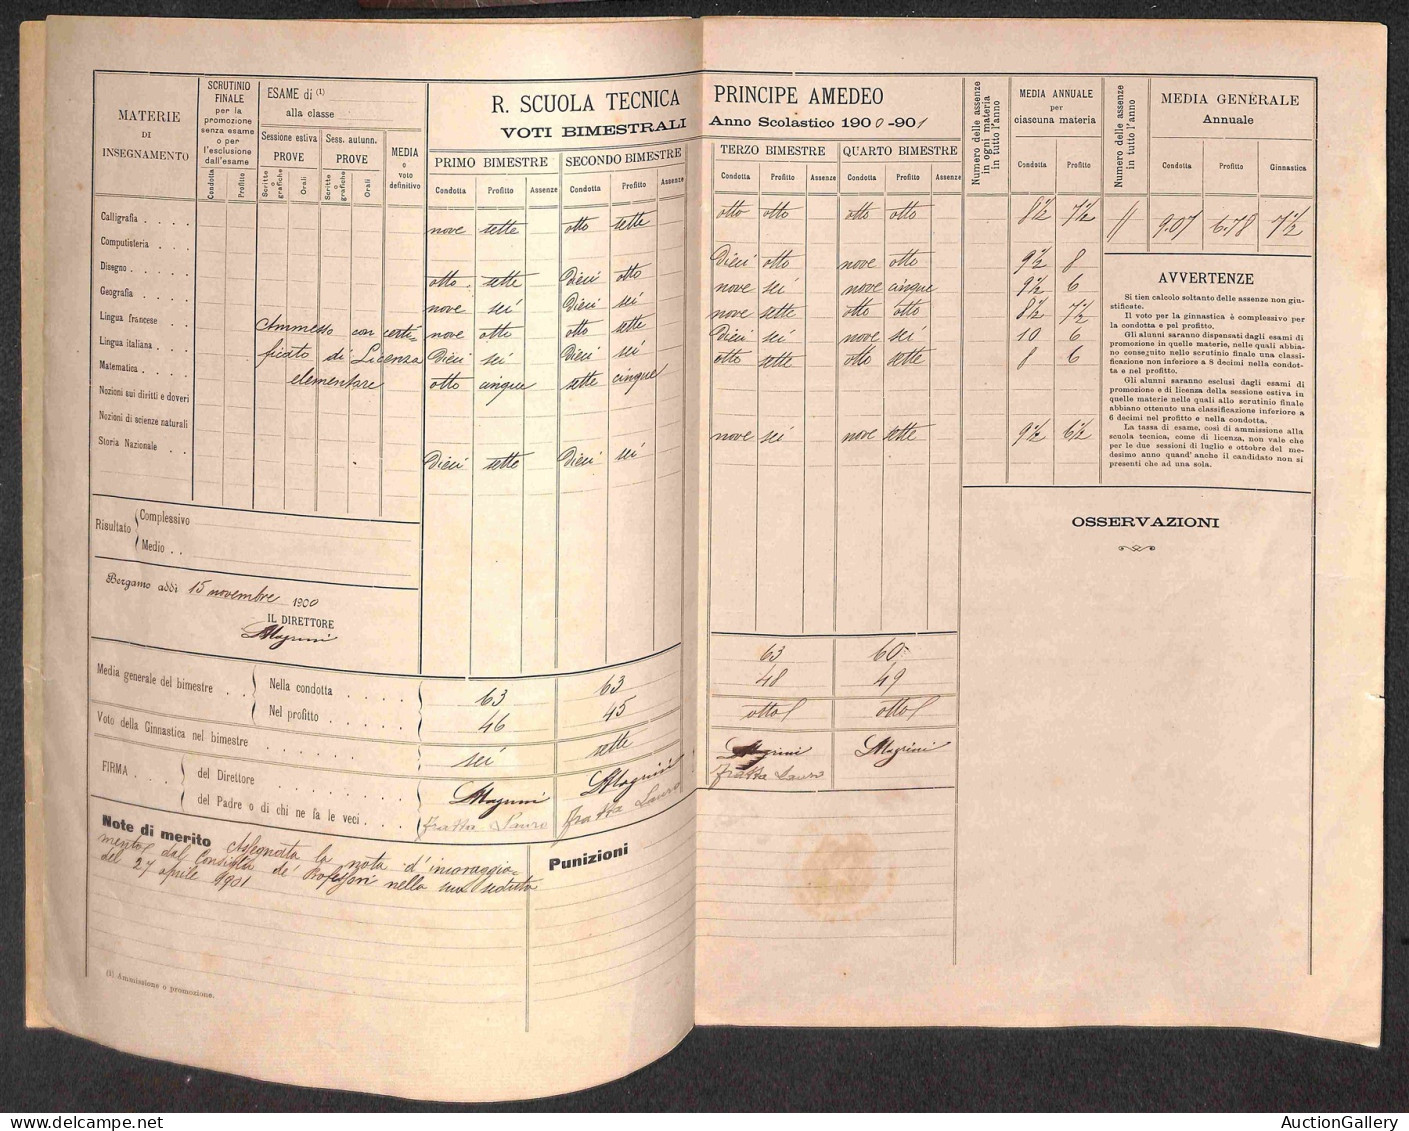 R. SCUOLA TECNICA PRINCIPE AMEDEO
VOTI BIMESTRALI Anno Scolastico 1900-901
MATERIE
DI
INSEGNAMENTO
SCRUTINIO
FINALE
per la
promozione
senza esame
o per
l'esclusione
dall'esame
Condotta Profitto
ESAME di (1)
alla classe
Sessione estiva
PROVE
Scritte o grafiche Orali
Sess. autunn.
PROVE
Scritte o grafiche Orali
MEDIA
o
voto
definitivo
PRIMO BIMESTRE SECONDO BIMESTRE TERZO BIMESTRE QUARTO BIMESTRE
Condotta Profitto Assenze Condotta Profitto Assenze Condotta Profitto Assenze Condotta Profitto Assenze
Numero delle assenze
in ogni materia
in tutto l'anno
MEDIA ANNUALE
per
ciascuna materia
Condotta Profitto
Numero delle assenze
in tutto l'anno
MEDIA GENERALE
Annuale
Condotta Profitto Ginnastica
Calligrafia nove sette otto sette otto otto otto otto 8½ 7½ // 9.07 6.78 7½
Computisteria
Disegno otto sette Dieci otto Dieci otto nove otto 9½ 8
Geografia nove sei Dieci sei nove sei nove cinque 9½ 6
Lingua francese nove otto otto sette nove sette otto otto 8½ 7½
Lingua italiana Dieci sei Dieci sei Dieci sei nove sei 10 6
Matematica otto cinque sette cinque otto sette otto sette 8 6
Nozioni sui diritti e doveri
Nozioni di scienze naturali
Storia Nazionale Dieci sette Dieci sei nove sei nove sette 9½ 6½
Ammesso con certi-
ficato di Licenza
elementare
Risultato
Complessivo
Medio
Bergamo addì 15 novembre 1900
IL DIRETTORE
Magrini
Media generale del bimestre
Nella condotta 63 63 63 60
Nel profitto 46 45 48 49
Voto della Ginnastica nel bimestre sei sette otto otto
FIRMA
del Direttore Magrini Magrini Magrini Magrini
del Padre o di chi ne fa le veci Fratta Lauro Fratta Lauro Fratta Lauro
Note di merito Assegnata la nota d'incoraggia-
mento dal Consiglio de' Professori nella sua seduta
del 27 aprile 1901
Punizioni
(1) Ammissione o promozione.
AVVERTENZE
Si tien calcolo soltanto delle assenze non giu-
stificate.
Il voto per la ginnastica è complessivo per
la condotta e pel profitto.
Gli alunni saranno dispensati dagli esami di
promozione in quelle materie, nelle quali abbia-
no conseguito nello scrutinio finale una classi-
ficazione non inferiore a 8 decimi nella condot-
ta e nel profitto.
Gli alunni saranno esclusi dagli esami di
promozione e di licenza della sessione estiva in
quelle materie nelle quali allo scrutinio finale
abbiano ottenuto una classificazione inferiore a
6 decimi nel profitto e nella condotta.
La tassa di esame, così di ammissione alla
scuola tecnica, come di licenza, non vale che
per le due sessioni di luglio e ottobre del me-
desimo anno quand'anche il candidato non si
presenti che ad una sola.
OSSERVAZIONI
AuctionGallery